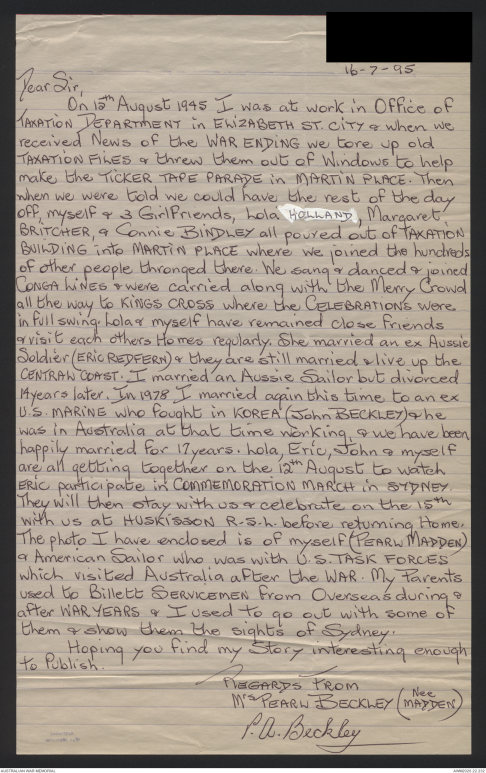 16-7-95
Dear Sir,
On 15th August 1945 I was at work in Office of
TAXATION DEPARTMENT in ELIZABETH ST. CITY & when we
received News of the WAR ENDING we tore up old
TAXATION FILES & threw them out of Windows to help
make the TICKER TAPE PARADE in MARTIN PLACE. Then
when we were told we could have the rest of the day
off, myself & 3 GirlFriends, Lola HOLLAND, Margaret
BRITCHER, & Connie BINDLEY all poured out of TAXATION
BUILDING into MARTIN PLACE where we joined the hundreds
of other people thronged there. We sang & danced & joined
CONGA LINES & were carried along with the Merry Crowd
all the way to KINGS CROSS where the CELEBRATIONS were
in full swing. Lola & myself have remained close friends
& visit each others Homes regularly. She married an ex Aussie
Soldier (ERIC REDFERN) & they are still married & live up the
CENTRAL COAST. I married an Aussie Sailor but divorced
14 years later. In 1978 I married again this time to an ex
U.S. MARINE who fought in KOREA (John BECKLEY) & he
was in Australia at that time working, & we have been
happily married for 17 years. Lola, Eric, John & myself
are all getting together on the 12th August to watch
ERIC participate in COMMEMORATION MARCH in SYDNEY.
They will then stay with us & celebrate on the 15th
with us at HUSKISSON R.S.L. before returning Home.
The photo I have enclosed is of myself (PEARL MADDEN)
& American Sailor who was with U.S. TASK FORCES
which visited Australia after the WAR. My Parents
used to Billett SERVICEMEN from Overseas during &
after WAR YEARS & I used to go out with some of
them & show them the sights of Sydney.
Hoping you find my Story interesting enough
to Publish.
REGARDS FROM
Mrs PEARL BECKLEY (Nee MADDEN)
P.A. Beckley
AUSTRALIAN WAR MEMORIAL